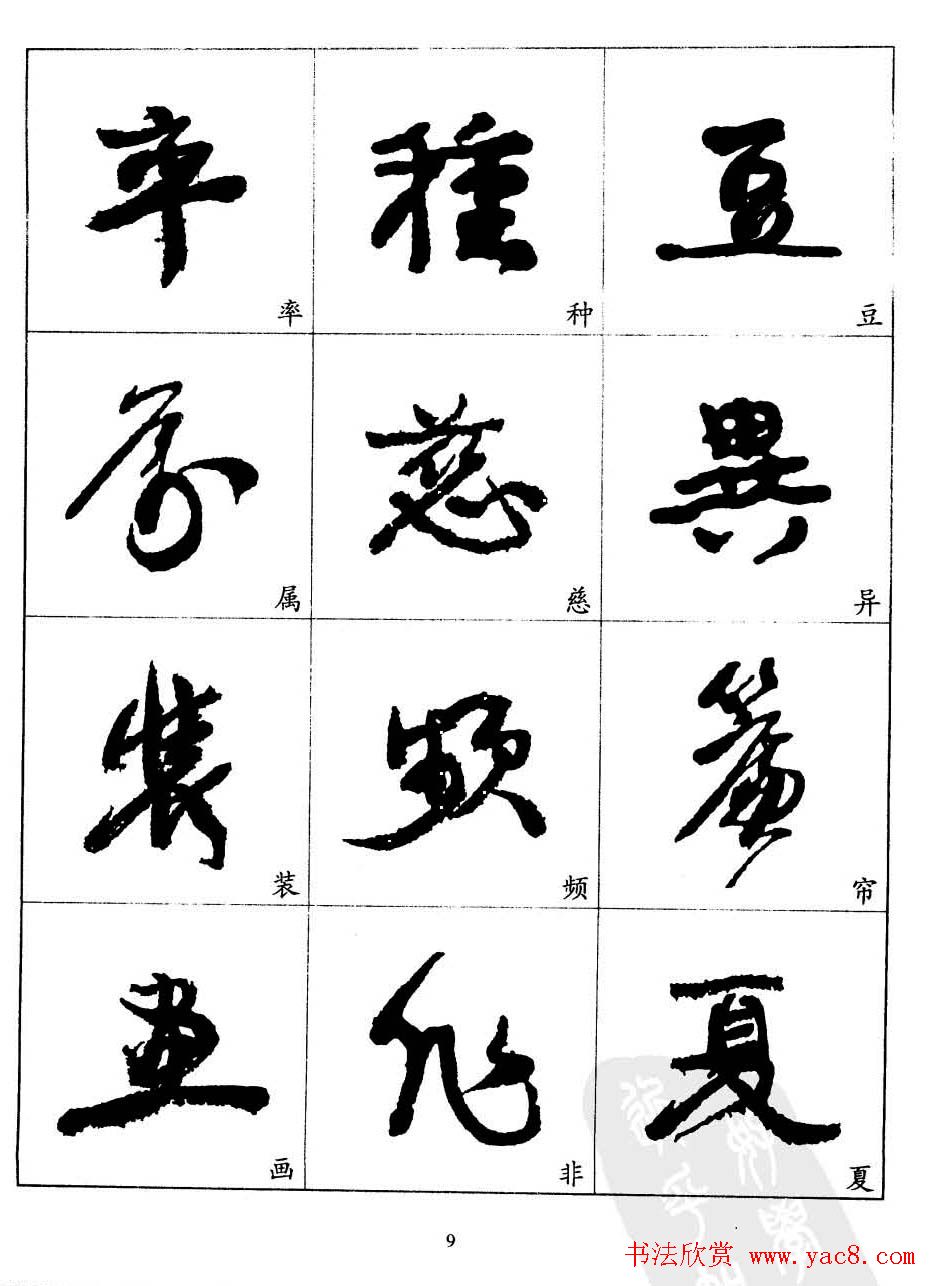 率 種 豆
率 种 豆
属 慈 異
属 慈 异
裝 頻 簾
装 频 帘
畫 非 夏
画 非 夏
9
书法欣赏 www.yac8.com